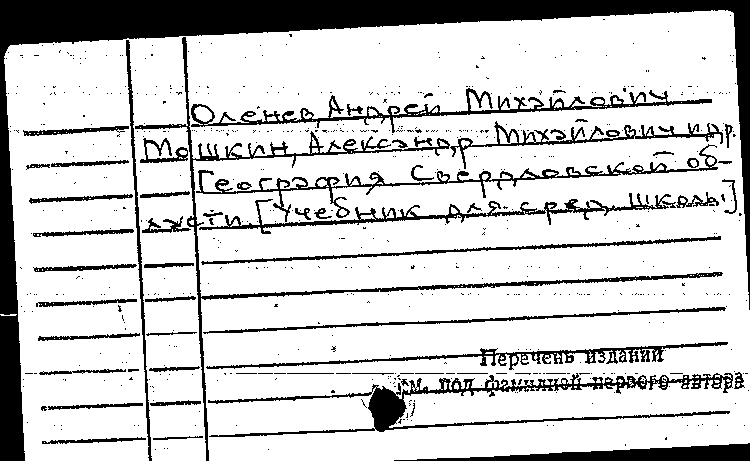 Оленев, Андрей Михайлович
Мошкин, Александр Михайлович и др.
География Свердловской об-
ласти [Учебник для сред. школы]
Перечень изданий
см. под фамилией первого автора